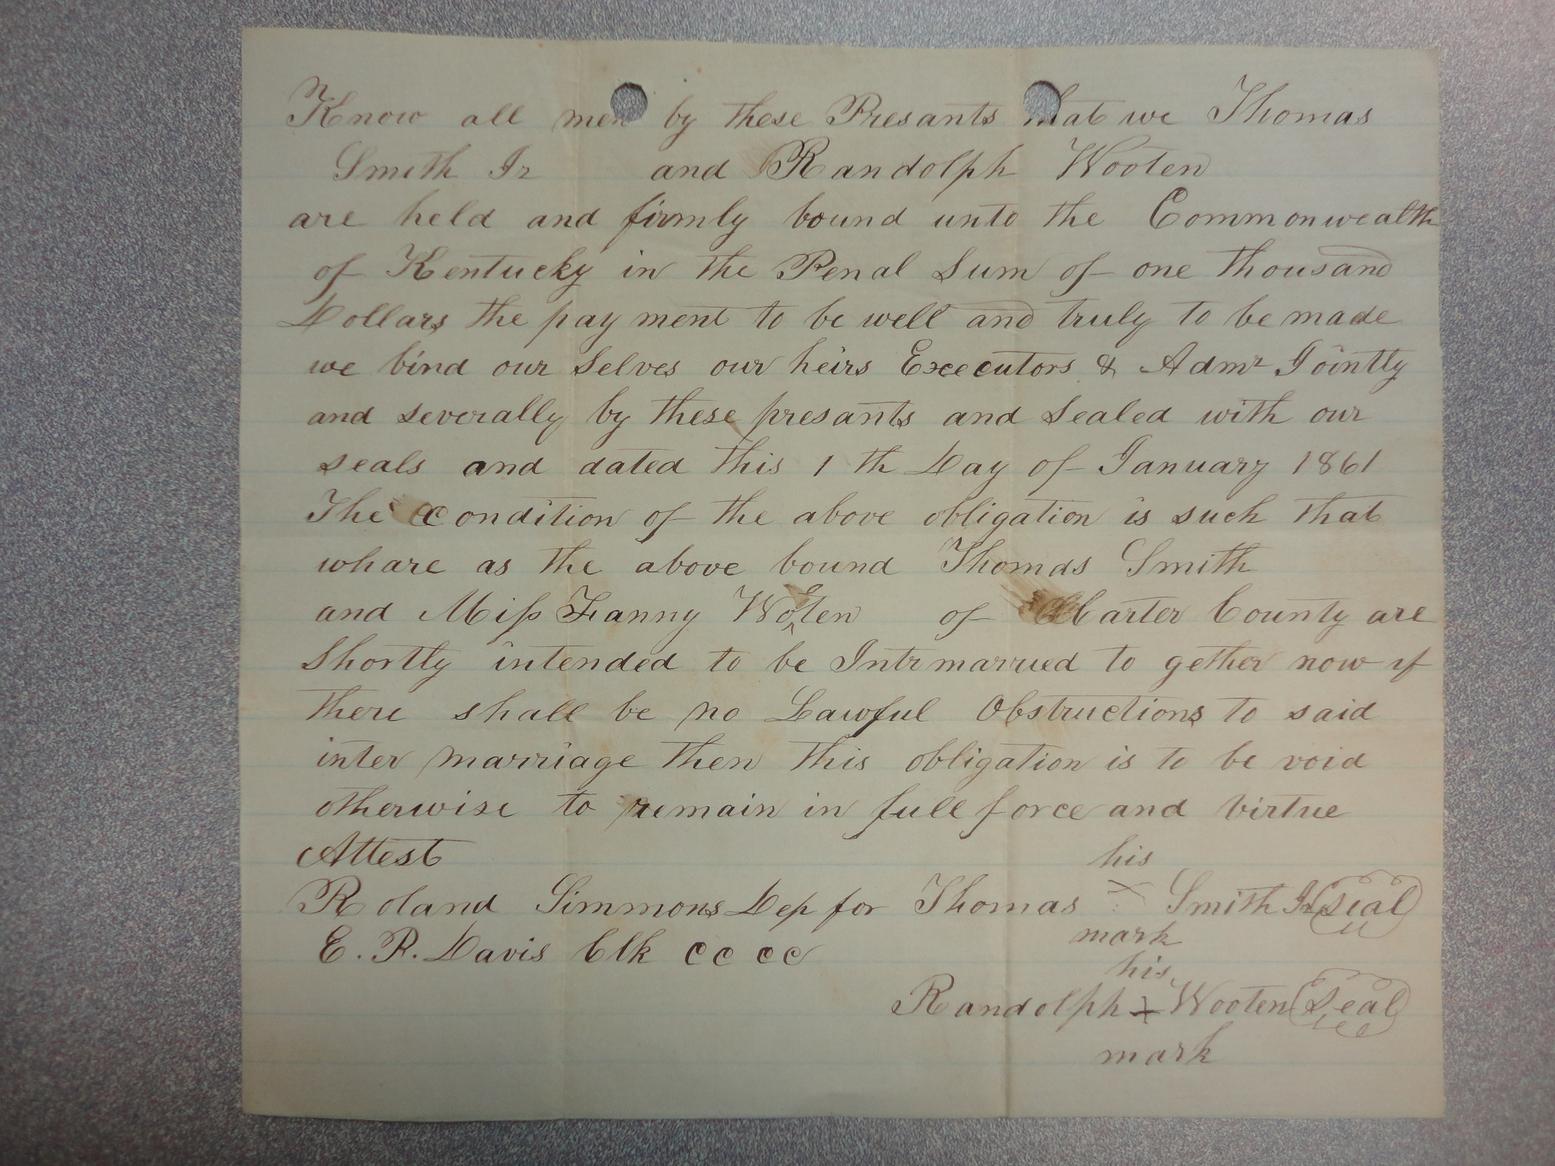 Know all men by these Presants that we Thomas
Smith Jr and Randolph Wooten
are held and firmly bound unto the Commonwealth
of Kentucky in the Penal Sum of one thousand
Dollars the pay ment to be well and truly to be made
we bind our Selves our heirs Executors & Admr Jointly
and severally by these presants and Sealed with our
seals and dated this 1 th Day of January 1861
The condition of the above obligation is such that
whare as the above bound Thomas Smith
and Miss Fanny Wooten of Carter County are
Shortly intended to be Intrmarried to gether now if
there shall be no Lawful Obstructions to said
inter marriage then this obligation is to be void
otherwise to remain in full force and virtue
Attest his
Roland Simmons Dep for Thomas X Smith Jr Seal
mark
E. R. Davis Clk CC CC
his
Randolph X Wooten Seal
mark